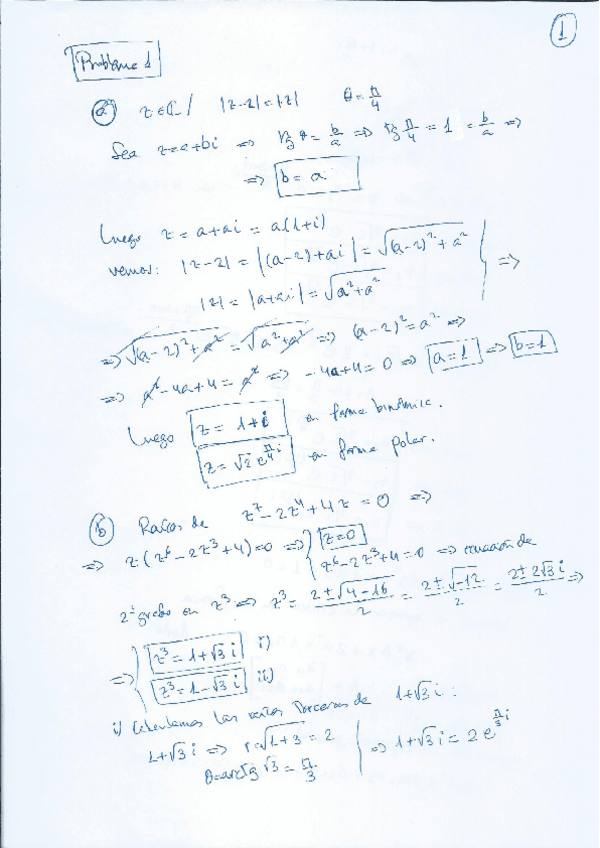 1
Problema 1
a) z∈ℂ / |z-2|=|z| θ=π/4
Sea z=a+bi ⇒ tg θ = b/a ⇒ tg π/4 = 1 = b/a ⇒
⇒ b = a
Luego z = a+ai = a(1+i)
vemos: |z-2| = |(a-2)+ai| = √((a-2)²+a²) } ⇒
|z| = |a+ai| = √(a²+a²)
⇒ √((a-2)²+a²) = √(a²+a²) ⇒ (a-2)²=a² ⇒
⇒ a²-4a+4 = a² ⇒ -4a+4=0 ⇒ a=1 ⇒ b=1
Luego z = 1+i en forma binómica.
z=√2 e^(π/4 i) en forma polar.
b) Raíces de z⁷-2z⁴+4z=0 ⇒
⇒ z(z⁶-2z³+4)=0 ⇒ { z=0
z⁶-2z³+4=0 ⇒ ecuación de
2º grado en z³ ⇒ z³ = (2±√(4-16))/2 = (2±√-12)/2 = (2±2√3 i)/2 ⇒
⇒ { z³=1+√3 i i)
z³=1-√3 i ii)
i) Calculamos las raíces terceras de 1+√3 i :
1+√3 i ⇒ r=√(1+3) = 2 } ⇒ 1+√3 i = 2 e^(π/3 i)
θ=arctg √3 = π/3